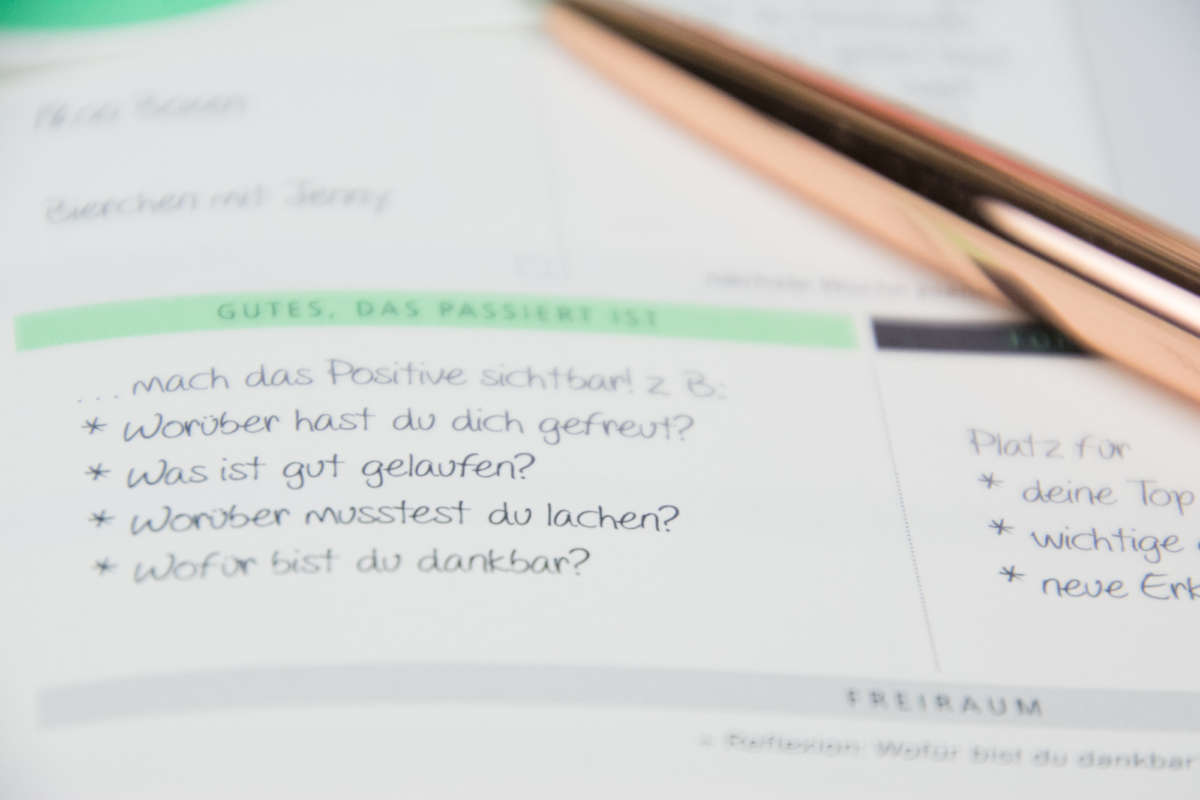 Bierchen mit Jenny
GUTES, DAS PASSIERT IST
... mach das Positive sichtbar! z B:
* Worüber hast du dich gefreut?
* Was ist gut gelaufen?
* Worüber musstest du lachen?
* Wofür bist du dankbar?
Platz für
* deine Top
* wichtige
* neue Erk
FREIRAUM
= Reflexion: Wofür bist du dankbar